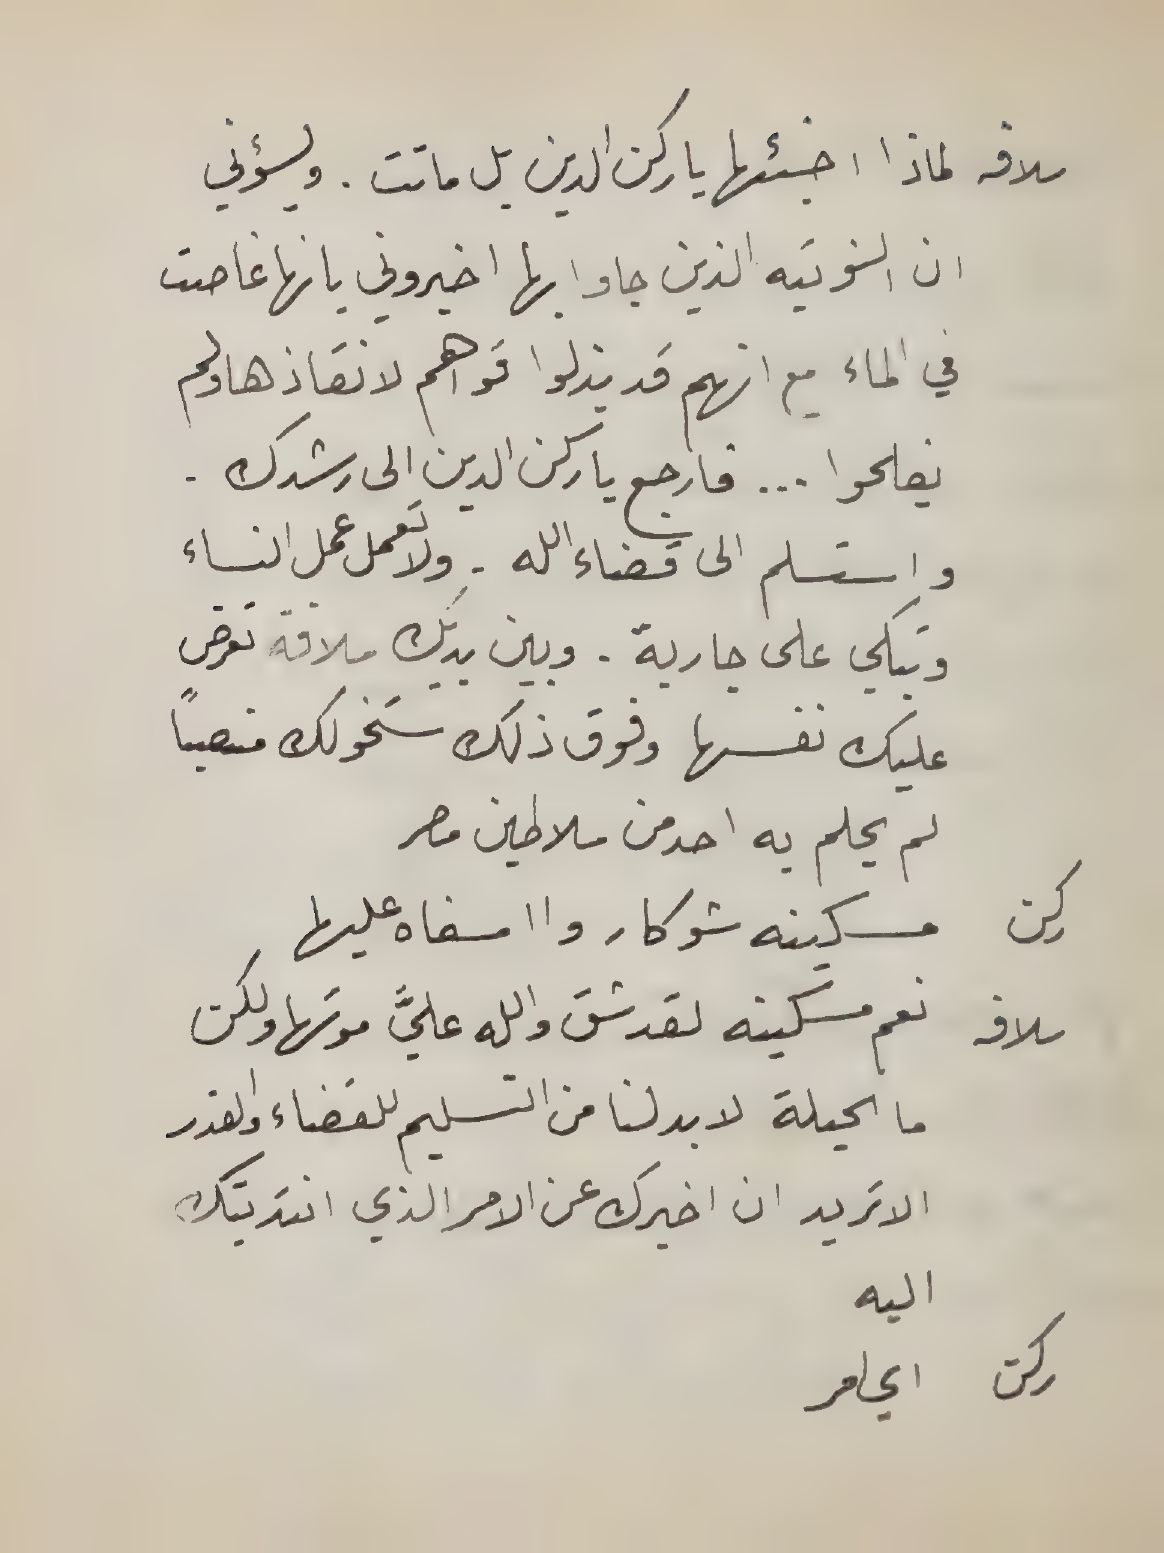 سلافه لماذا اخبئها ياركن الدين بل ماتت . ويسؤني
ان النوتيه الذين جاوا بها اخبروني بانها غاصت
في الماء مع انهم قد بذلوا قواهم لانقاذها ولم
يفلحوا ... فارجع ياركن الدين الى رشدك .
واستسلم الى قضاء الله . ولا تعمل عمل النساء
وتبكي على جارية . وبين يديك سلافة تعرض
عليك نفسها وفوق ذلك ستخولك منصباً
لم يحلم به احد من سلاطين مصر
ركن مسكينه شوكار وا اسفاه عليها
سلافه نعم مسكينه لقد شق والله عليَّ موتها ولكن
ما الحيلة لابد لنا من التسليم للقضاء والقدر
الا تريد ان اخبرك عن الامر الذي انتدبتك
اليه
ركن اي امر